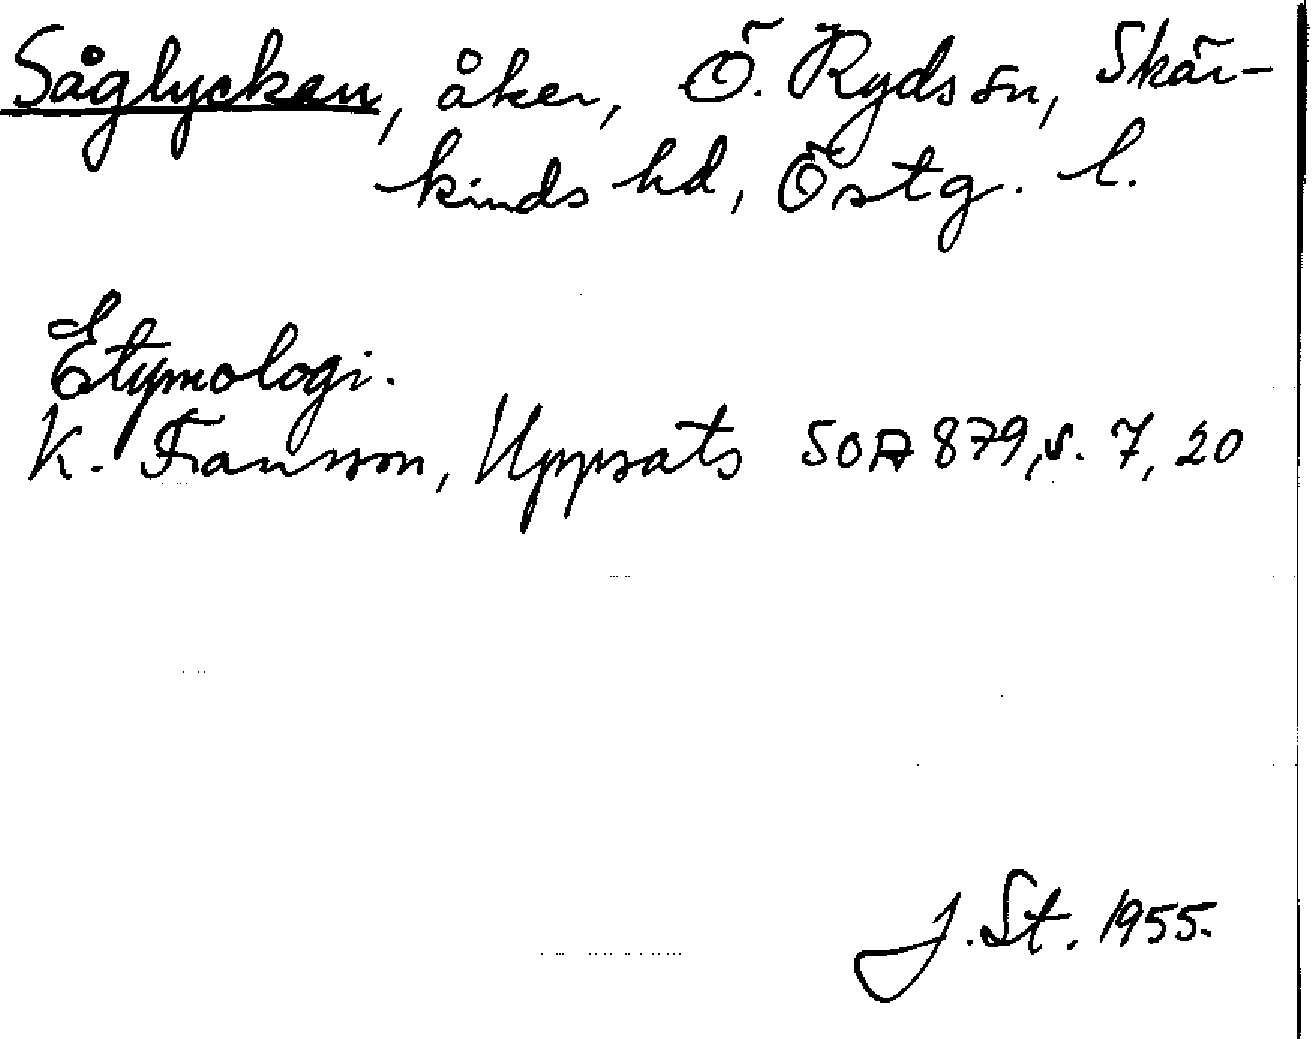 Såglyckan, åker, Ö. Ryds sn, Skär-
kinds hd, Östg. l.
Etymologi.
K. Fransson, Uppsats SOA 879, s. 7, 20
J. St. 1955.